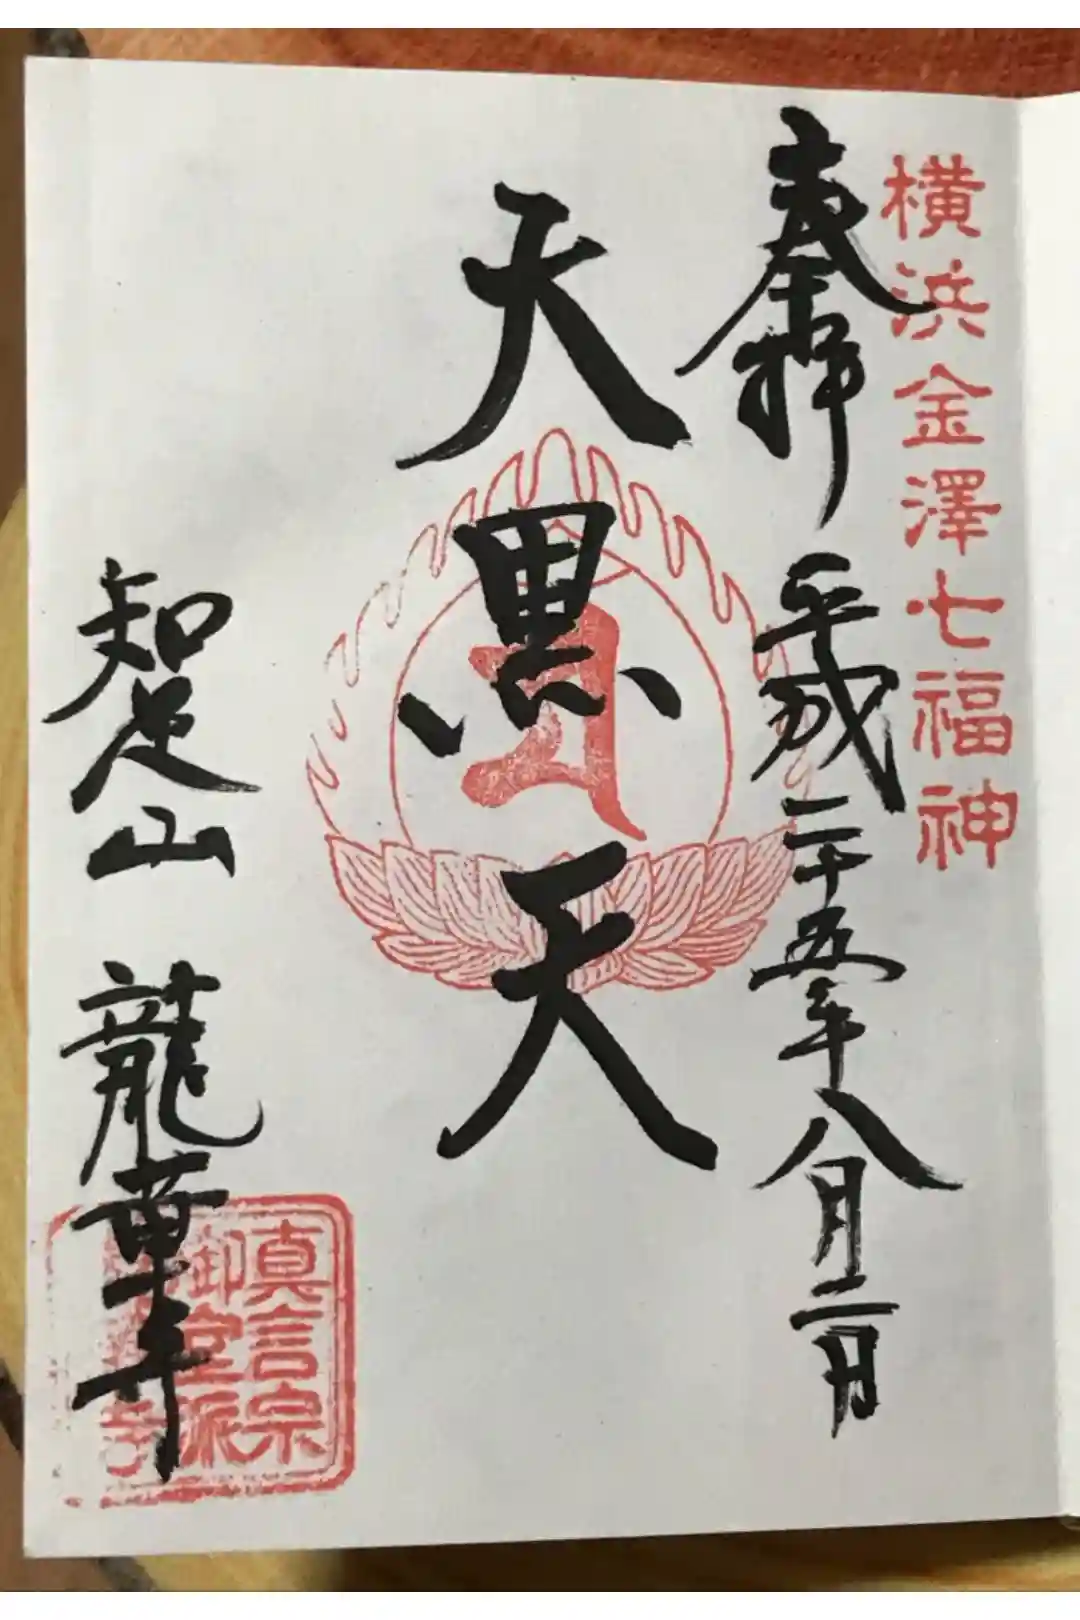 横浜金澤七福神
奉拝 平成二十五年八月二日
大黒天
知足山 龍華寺
真言宗
御室派